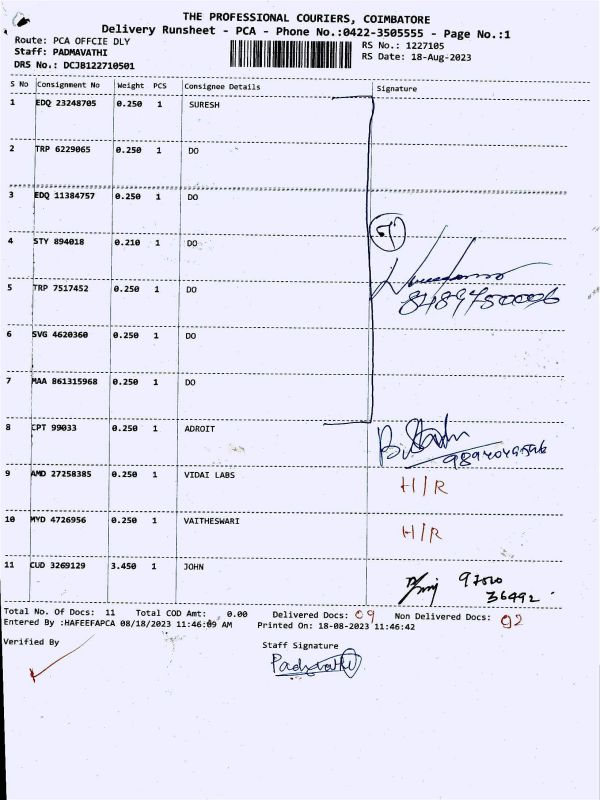 THE PROFESSIONAL COURIERS, COIMBATORE
Delivery Runsheet - PCA - Phone No.:0422-3505555 - Page No.:1
Route: PCA OFFCIE DLY
RS No.: 1227105
Staff: PADMAVATHI
RS Date: 18-Aug-2023
DRS No.: DCJB122710501
S No Consignment No Weight PCS Consignee Details Signature
1 EDQ 23248705 0.250 1 SURESH
2 TRP 6229065 0.250 1 DO
3 EDQ 11384757 0.250 1 DO
4 STY 894018 0.210 1 DO
5 TRP 7517452 0.250 1 DO
6 SVG 4620360 0.250 1 DO
7 MAA 861315968 0.250 1 DO
8 CPT 99033 0.250 1 ADROIT
9 AMD 27258385 0.250 1 VIDAI LABS H/R
10 MYD 4726956 0.250 1 VAITHESWARI H/R
11 CUD 3269129 3.450 1 JOHN
36492
Total No. Of Docs: 11 Total COD Amt: 0.00 Delivered Docs: 09 Non Delivered Docs: 02
Entered By :HAFEEFAPCA 08/18/2023 11:46:09 AM Printed On: 18-08-2023 11:46:42
Verified By
Staff Signature